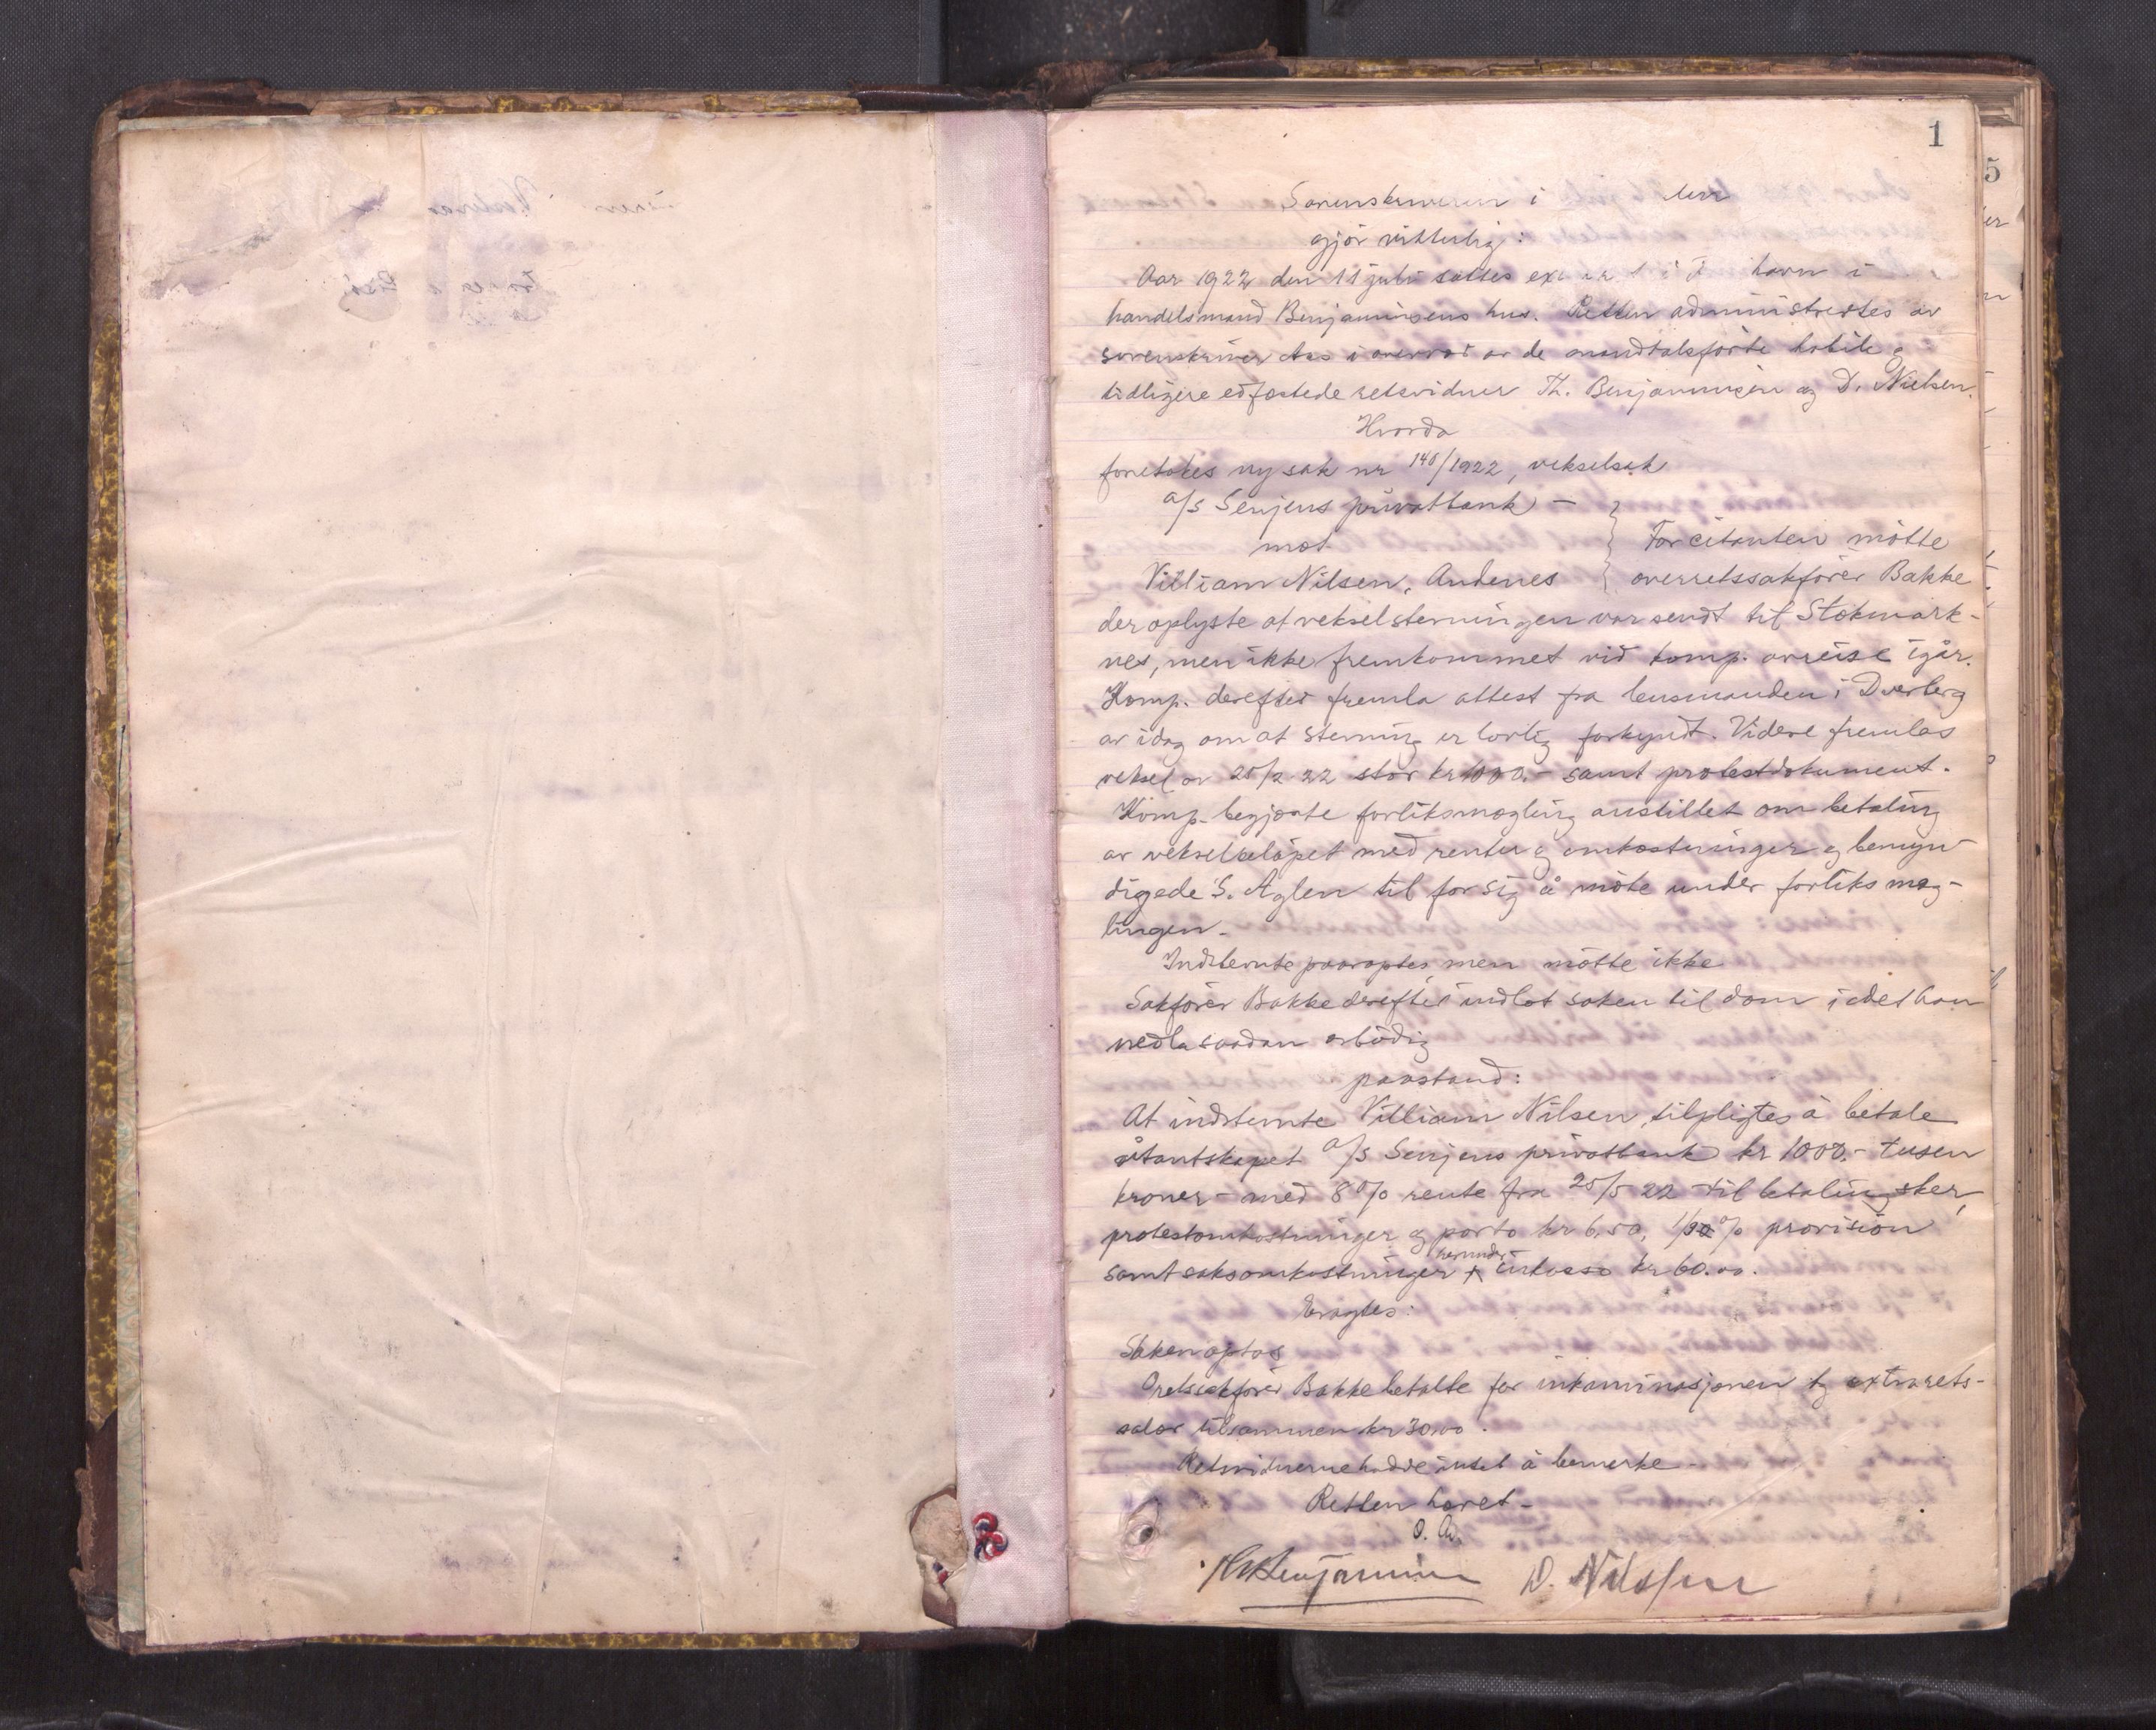 1
5
Sorenskriveren i
gjör vitterlig:
Aar 1922 den 11 juli sattes havn i
handelsmand Benjaminsens hus. Retten administrertes av
sorenskriver Aas i overvær av de mandtalsförte habile
tidligere edfæstede retsvidner Th. Benjaminsen og D. Nielsen.
Hvorda
foretokes ny sak nr 140/1922, vekselsak
a/s Senjens privatbank –
mot
Villiam Nilsen, Andenes
For citanten mötte
overretssakförer Bakke
der oplyste at vekselstevningen var sendt til Stokmark-
nes, men ikke fremkommet vid komp. avreise igår.
Komp. derefter fremla attest fra lensmanden i Dverberg
av idag om at stevning er lovlig forkyndt. Videre fremlas
veksel av 25/2 22 stor kr 1000.- samt protestdokument.
Komp. begjærte forliksmægling anstillet om betaling
av vekselbelöpet med renter og omkostninger og bemyn-
digede S. Aglen til for sig å möte under forliksmæg-
lingen.
Indstevnte paaroptes, men mötte ikke
Sakförer Bakke derefter indlot saken til dom idet han
nedla saadan erbödig
paastand:
At indstevnte Villiam Nilsen tilpligtes å betale
citantskapet a/s Senjens privatbank kr 1000.- tusen
kroner – med 8 % rente fra 25/5 22 til betaling sker,
protestomkostninger og porto kr 6,50, provision
samt saksomkostninger herunder inkasso kr 60.00.
Eragtes:
Saken optas
Oretssakförer Bakke betalte for inkaminasjonen og extrarets-
salær tilsammen kr 30.00.
Retsvidnerne hadde intet å bemerke –
Retten hævet –
O. Aas
Benjaminsen D. Nilssen